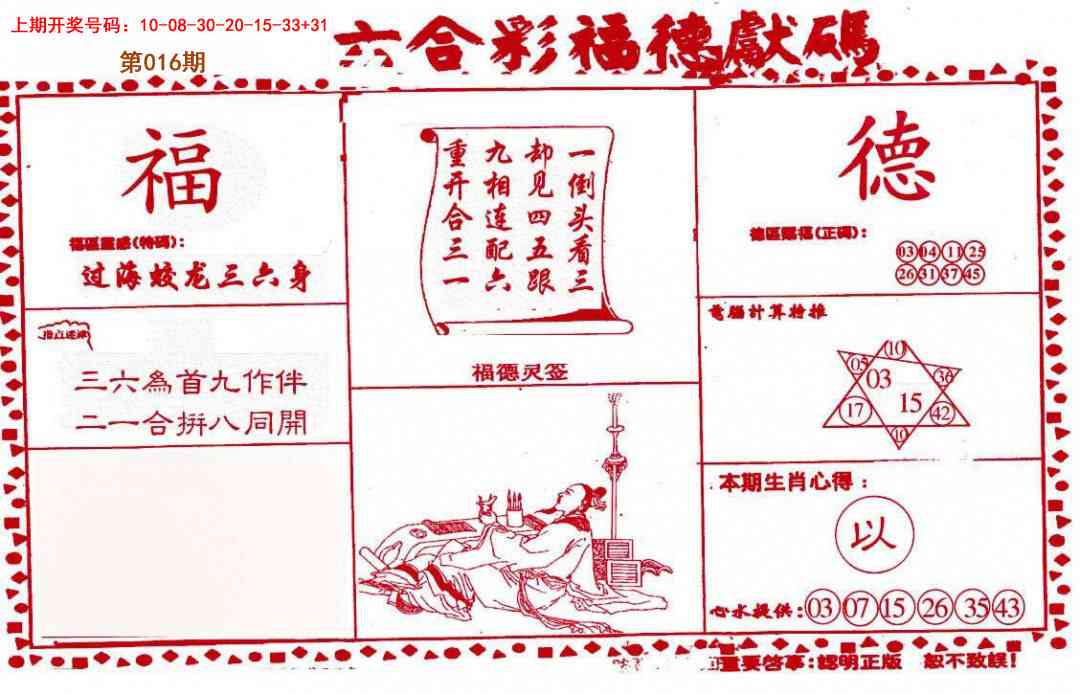 上期开奖号码：10-08-30-20-15-33+31
第016期
六合彩福德獻碼
福
福區靈感(特碼)：
过海蛟龙三六身
三六為首九作伴
二一合拼八同開
一倒头看三
却见四五跟
九相连配六
重开合三一
福德灵签
德
德區賜福(正碼)：
03 04 11 25
26 31 37 45
電腦計算特推
10
05
03
36
17
15
42
10
本期生肖心得：
以
心水提供：03 07 15 26 35 43
重要啓事：認明正版 恕不致誤！